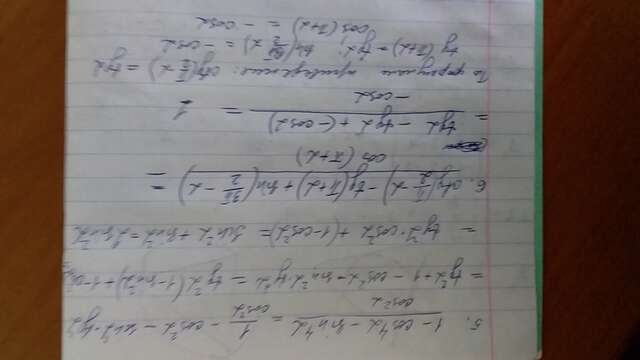 5. 1 - cos⁴α - sin⁴α / cos²α = 1/cos²α - cos²α - sin²α·tg²α
= tg²α + 1 - cos²α - sin²α·tg²α = tg²α(1 - sin²α) + 1 - cos²α
= tg²α·cos²α + (1 - cos²α) = sin²α + sin²α = 2sin²α
6. ctg(π/2 - α) - tg(π + α) + sin(3π/2 - α) =
cos(π + α)
= tgα - tgα + (-cosα) = 1
-cosα
По формулам приведения: ctg(π/2 - α) = tgα
tg(π + α) = tgα; sin(3π/2 - α) = -cosα
cos(π + α) = -cosα